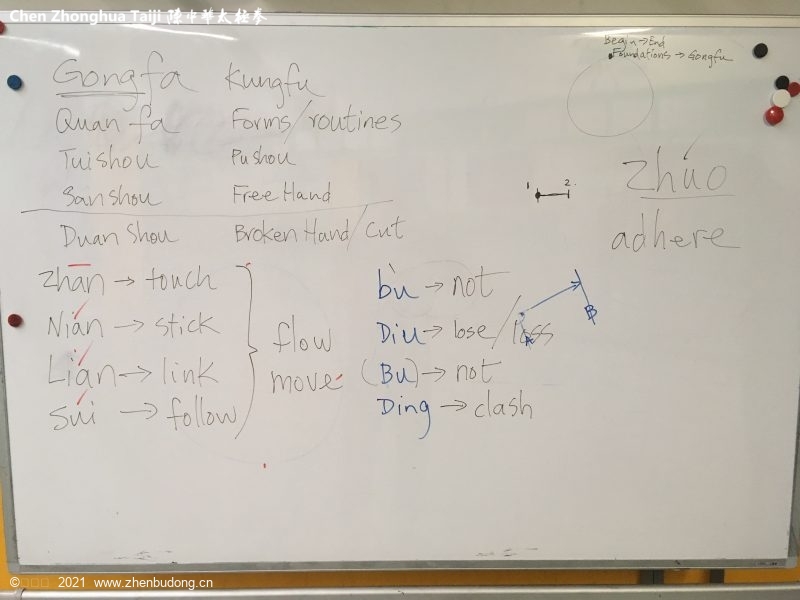 Chen Zhonghua Taiji 陳中华太极拳
Begin → End
Foundations → Gongfu
Gongfa Kungfu
Quan fa Forms/routines
Tuishou Pushou
Sanshou Free Hand
Duan Shou Broken Hand/Cut
1 2.
Zhúo
adhere
Zhān → touch
Nián → stick
Lián → link
Súi → follow
flow
move
bù → not
Diu → lose/loss
(Bu) → not
Ding → clash
A
B
© 2021 www.zhenbudong.cn